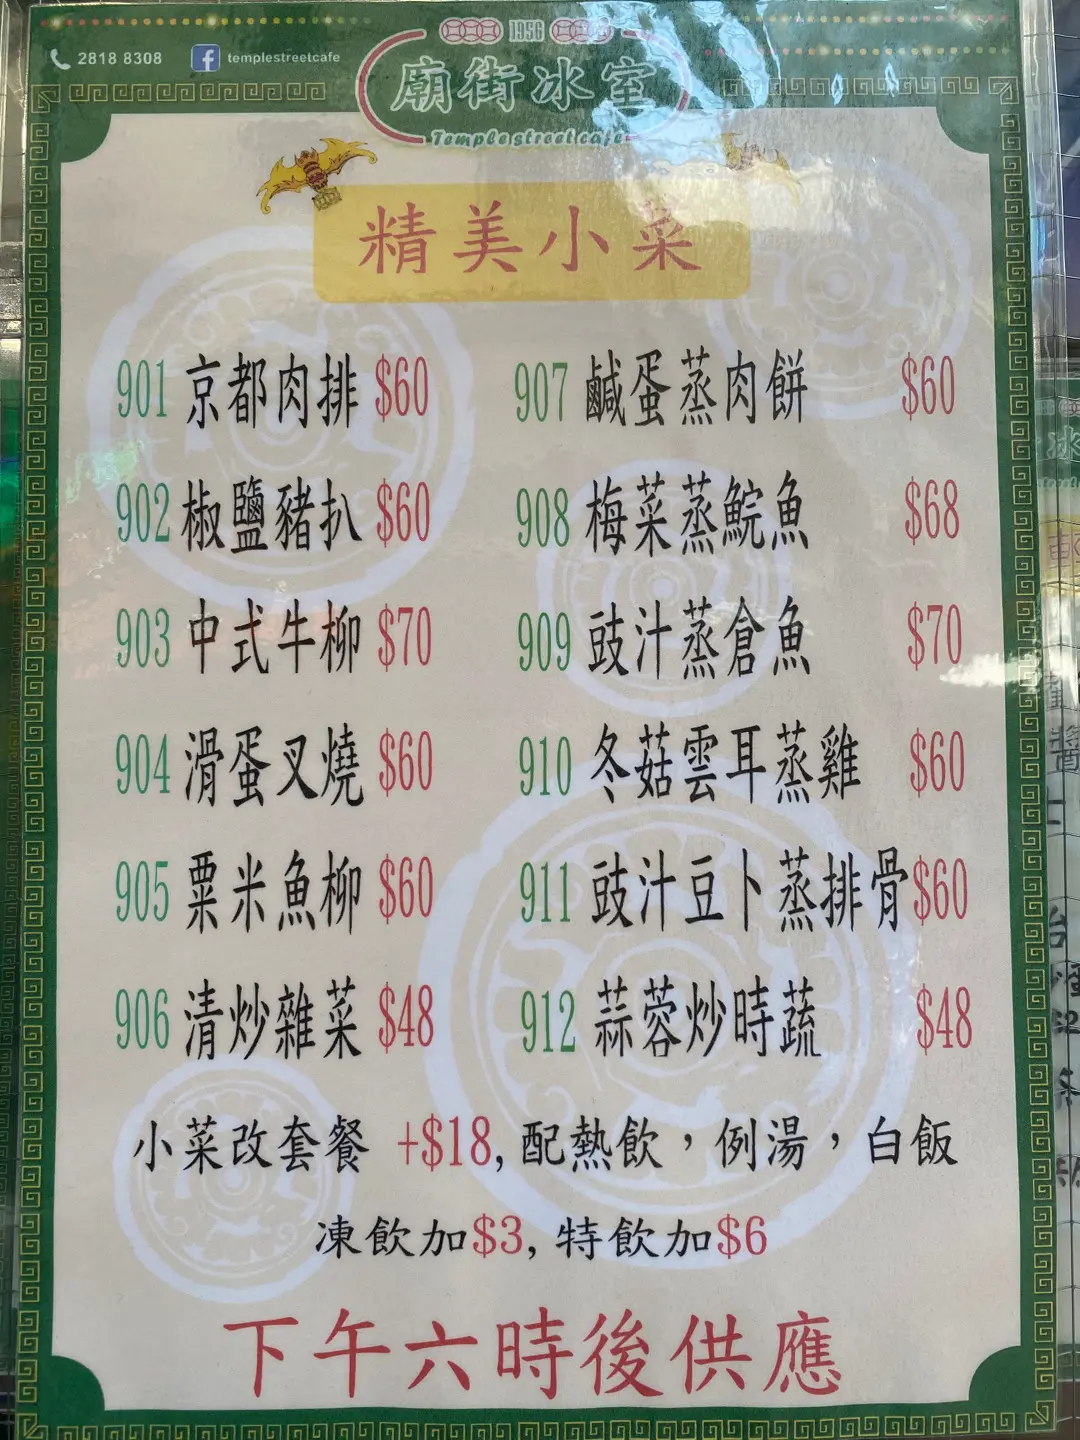 1956
2818 8308 templestreetcafe
廟街冰室
Temple street cafe
精美小菜
901 京都肉排 $60
907 鹹蛋蒸肉餅 $60
902 椒鹽豬扒 $60
908 梅菜蒸鯇魚 $68
903 中式牛柳 $70
909 豉汁蒸倉魚 $70
904 滑蛋叉燒 $60
910 冬菇雲耳蒸雞 $60
905 粟米魚柳 $60
911 豉汁豆卜蒸排骨 $60
906 清炒雜菜 $48
912 蒜蓉炒時蔬 $48
小菜改套餐 +$18, 配熱飲，例湯，白飯
凍飲加$3, 特飲加$6
下午六時後供應